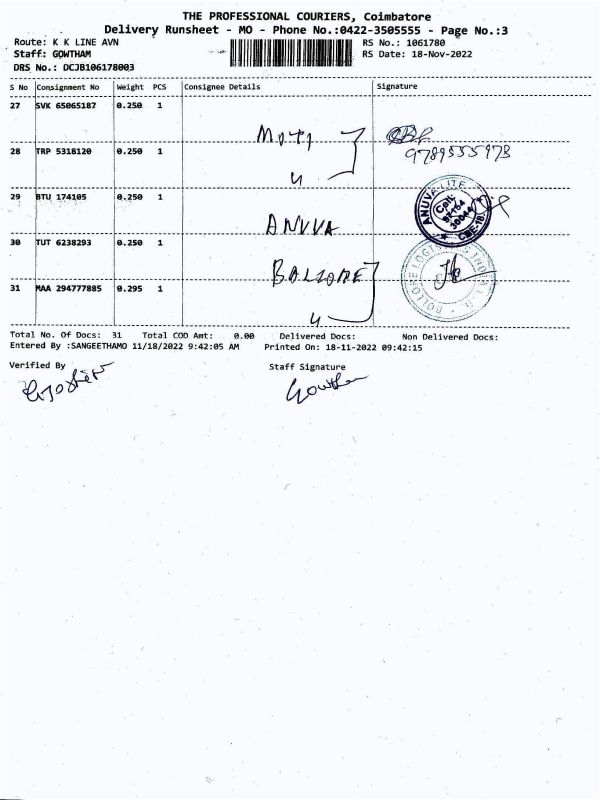 THE PROFESSIONAL COURIERS, Coimbatore
Delivery Runsheet - MO - Phone No.:0422-3505555 - Page No.:3
Route: K K LINE AVN
RS No.: 1061780
Staff: GOWTHAM
RS Date: 18-Nov-2022
DRS No.: DCJB106178003
S No Consignment No Weight PCS Consignee Details Signature
27 SVK 65065187 0.250 1
MOTI
28 TRP 5318120 0.250 1
9789555973
29 BTU 174105 0.250 1
ANUVA
ANUVA LITE
30 TUT 6238293 0.250 1
31 MAA 294777885 0.295 1
Total No. Of Docs: 31 Total COD Amt: 0.00 Delivered Docs: Non Delivered Docs:
Entered By :SANGEETHAMO 11/18/2022 9:42:05 AM Printed On: 18-11-2022 09:42:15
Verified By Staff Signature
Gowtham